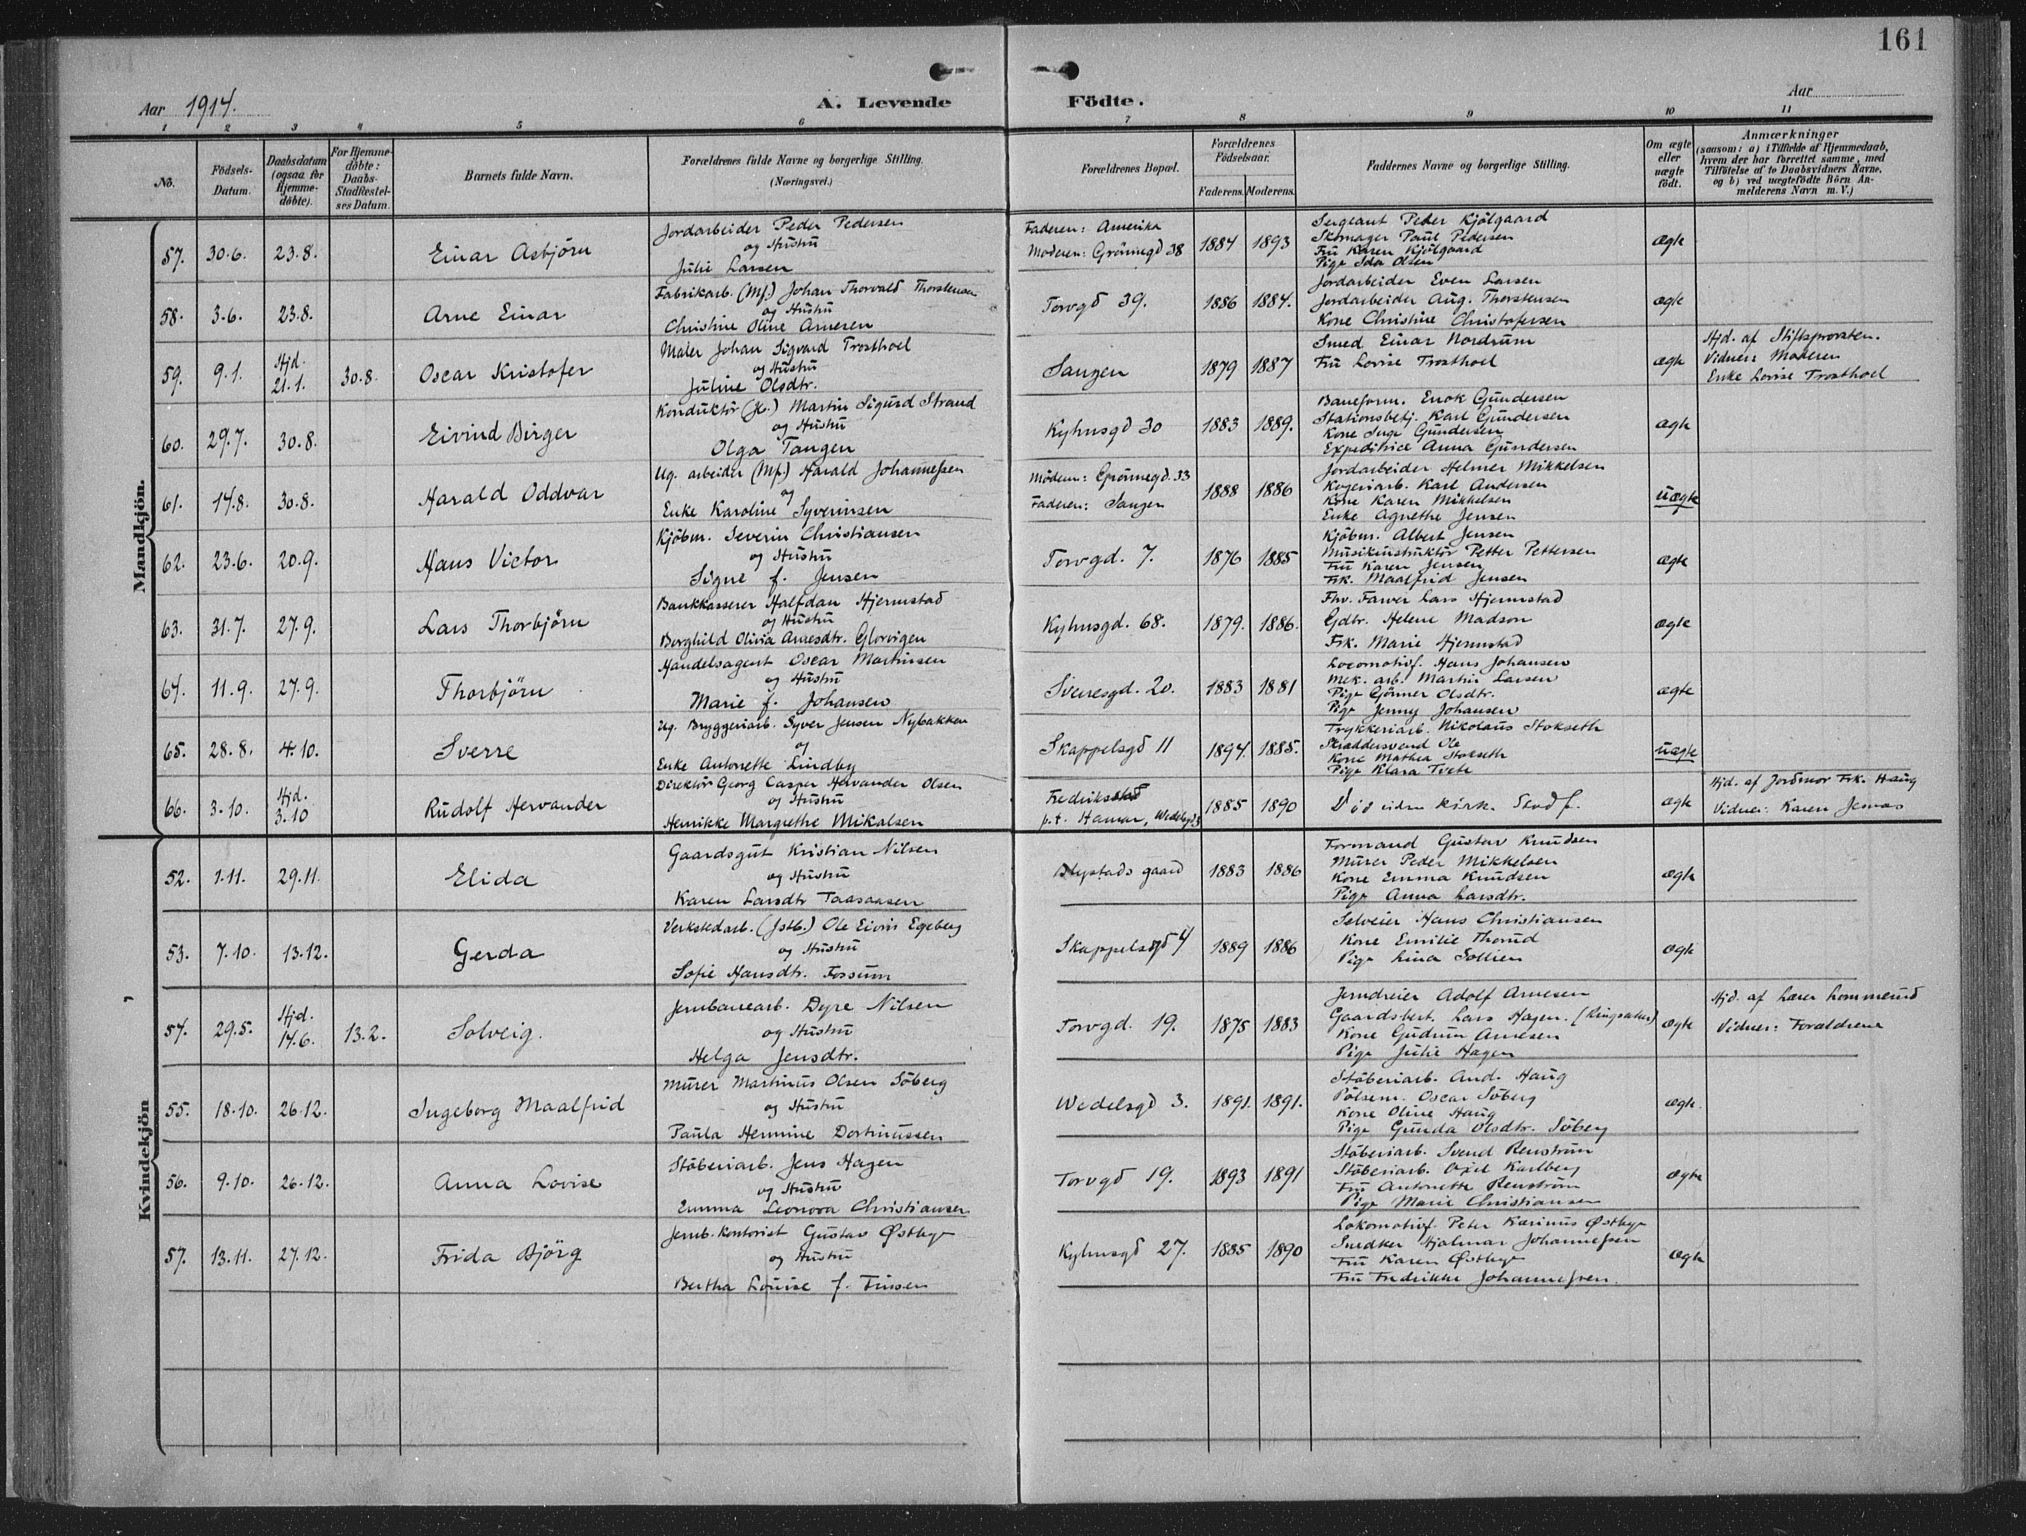 161
Aar 1914.
A. Levende Födte.
Aar
1 2 3 4 5 6 7 8 9 10 11
No.
Födsels-Datum.
Daabsdatum (ogsaa for Hjemme-döbte).
For Hjemme-döbte: Daabs-Stadfæstel-ses Datum.
Barnets fulde Navn.
Forældrenes fulde Navne og borgerlige Stilling.
(Næringsvei.)
Forældrenes Bopæl.
Forældrenes Födselsaar.
Faderens. Moderens.
Faddernes Navne og borgerlige Stilling.
Om ægte eller uægte födt.
Anmærkninger
(saasom: a) i Tilfælde af Hjemmedaab, hvem der har forrettet samme, med Tilföielse af to Daabsvidners Navne, og b) ved uægtefödte Börn An-melderens Navn m. V.)
Mandkjön.
57. 30.6. 23.8. Einar Asbjörn
Jordarbeider Peder Pedersen
og Hustru
Julie Larsen
Faderen: Amerika
Moderen: Grönnegd 38
1884 1893
Sergeant Peder Kjölgaard
Skomager Paul Pedersen
Fru Karen Kjölgaard
Pige Ida Olsen
ægte
58. 3.6. 23.8. Arne Einar
Fabrikarb. (Mf.) Johan Thorvald Thorstensen
og Hustru
Christine Oline Arnesen
Torvgd 39. 1886 1884.
Jordarbeider Even Larsen
Jordarbeider Aug. Thorstensen
Kone Christine Christofersen
ægte
59. 9.1. Hjd. 21.1. 30.8. Oscar Kristofer
Maler Johan Sigvard Trosthoel
og Hustru
Juline Olsdtr.
Sangen 1879 1887
Smed Einar Nordrum
Fru Lovise Trosthoel
ægte
Hjd. af Stiftsprovsten.
Vidner: Moderen
Enke Lovise Trosthoel
60. 29.7. 30.8. Eivind Birger
Konduktör (Jb.) Martin Sigurd Strand
og Hustru
Olga Tangen
Kyhnsgd 30 1883 1889.
Baneform. Enok Gundersen
Stationsbetj. Karl Gundersen
Kone Inge Gundersen
Expeditrice Anna Gundersen
ægte
61. 14.8. 30.8. Harald Oddvar
Ug. arbeider (Mf.) Harald Johannessen
og
Enke Karoline Syverinsen
Moderen: Grönnegd. 33
Faderen: Sangen
1888 1886
Jordarbeider Helmer Mikkelsen
Kogeriarb. Karl Andersen
Kone Karen Mikkelsen
Enke Agnethe Jensen
uægte
62. 23.6. 20.9. Hans Victor
Kjöbm. Severin Christiansen
og Hustru
Signe f. Jensen
Torvgd. 7. 1876 1885
Kjöbm. Albert Jensen
Musikinstruktör Petter Pettersen
Fru Karen Jensen
Frk. Maalfrid Jensen
ægte
63. 31.7. 27.9. Lars Thorbjörn
Bankkasserer Halfdan Hjermstad
og Hustru
Borghild Olivia Arnesdtr. Glorvigen
Kyhnsgd. 68. 1879. 1886.
Fhv. Farver Lars Hjermstad
Gdtr. Helene Madson
Frk. Marie Hjermstad
ægte
64. 11.9. 27.9. Thorbjörn
Handelsagent Oscar Martinsen
og Hustru
Marie f. Johansen
Sveresgd. 20. 1883 1881
Locomotivf. Hans Johansen
Mek. arb. Martin Larsen
Pige Gjönner Olsdtr.
Pige Jenny Johansen
ægte
65. 28.8. 4.10. Sverre
Ug. Bryggeriarb. Syver Jensen Nybakken
og
Enke Antonette Lindby
Skappelsgd 11 1894. 1885.
Trykkeriarb. Nikolaus Stokseth
Skræddersvend Ole
Kone Mathea Stokseth
Pige Klara Tvete
uægte
66. 3.10. Hjd. 3.10 Rudolf Hervander
Direktör Georg Casper Hervander Olsen
og Hustru
Henrikke Margrethe Mikalsen
Fredriksstad
p.t. Hamar, Wedelsgd 3
1885 1890
Död uden kirk. Stadf.
ægte
Hjd. af Jordmor Frk. Haug
Vidner: Karen
Kvindekjön
52. 1.11. 29.11. Elida
Gaardsgut Kristian Nilsen
og Hustru
Karen Larsdtr Taasaasen
Blystads gaard 1883 1886
Formand Gustav Knudsen
Murer Peder Mikkelsen
Kone Emma Knudsen
Pige Anna Larsdtr.
ægte
53. 7.10. 13.12. Gerda
Verkstedarb. (Jstb.) Ole Eivin Egeberg
og Hustru
Sofie Hansdtr. Fossum
Skappelsgd 4 1889 1886
Selveier Hans Christiansen
Kone Emilie Thorud
Pige Lina Sollien
ægte
54. 29.5. Hjd. 14.6. 13.2. Solveig.
Jernbanearb. Dyre Nilsen
og Hustru
Helga Jensdtr.
Torvgd. 19. 1875 1883
Jerndreier Adolf Arnesen
Gaardsbest. Lars Hagen. (Ringsaker)
Kone Gudrun Arnesen
Pige Julie Hagen
ægte
Hjd. af Lærer Lommerud
Vidner: Forældrene
55. 18.10. 26.12. Ingeborg Maalfrid
Murer Martinus Olsen Söberg
og Hustru
Paula Hermine Dortinussen
Wedelsgd 3. 1891. 1891.
Stöberiarb. And. Haug
Pölsem. Oscar Söberg
Kone Oline Haug
Pige Gunda Olsdtr. Söberg
ægte.
56. 9.10. 26.12. Anna Lovise
Stöberiarb. Jens Hagen
og Hustru
Emma Leonora Christiansen
Torvgd 19. 1893 1891
Stöberiarb. Svend Renström
Stöberiarb. Axel Karlberg
Fru Antonette Renström
Pige Marie Christiansen
ægte
57. 13.11. 27.12. Frida Björg
Jernb. Kontorist Gustav Østbye
og Hustru
Bertha Louise f. Finsen
Kyhnsgd 27. 1885 1890
Lokomotivf. Peter Karinus Østbye
Snedker Hjalmar Johannessen
Fru Karen Østbye
Fru Fredrikke Johannessen.
ægte